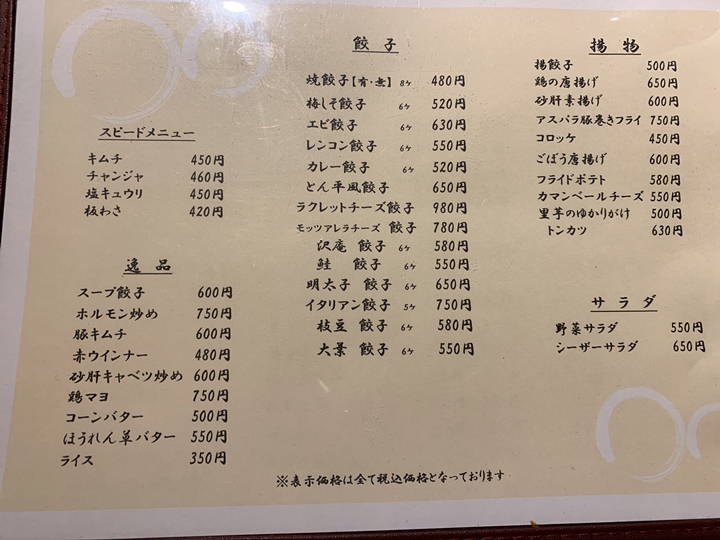 スピードメニュー
キムチ 450円
チャンジャ 460円
塩キュウリ 450円
板わさ 420円
逸品
スープ餃子 600円
ホルモン炒め 750円
豚キムチ 600円
赤ウインナー 480円
砂肝キャベツ炒め 600円
鶏マヨ 750円
コーンバター 500円
ほうれん草バター 550円
ライス 350円
餃子
焼餃子【有・無】 8ヶ 480円
梅しそ餃子 6ヶ 520円
エビ餃子 6ヶ 630円
レンコン餃子 6ヶ 550円
カレー餃子 6ヶ 520円
とん平風餃子 650円
ラクレットチーズ餃子 980円
モッツアレラチーズ 餃子 780円
沢庵 餃子 6ヶ 580円
鮭 餃子 6ヶ 550円
明太子 餃子 6ヶ 650円
イタリアン餃子 5ヶ 750円
枝豆 餃子 6ヶ 580円
大葉 餃子 6ヶ 550円
揚物
揚餃子 500円
鶏の唐揚げ 650円
砂肝素揚げ 600円
アスパラ豚巻きフライ 750円
コロッケ 450円
ごぼう唐揚げ 600円
フライドポテト 580円
カマンベールチーズ 550円
里芋のゆかりがけ 500円
トンカツ 630円
サラダ
野菜サラダ 550円
シーザーサラダ 650円
※表示価格は全て税込価格となっております